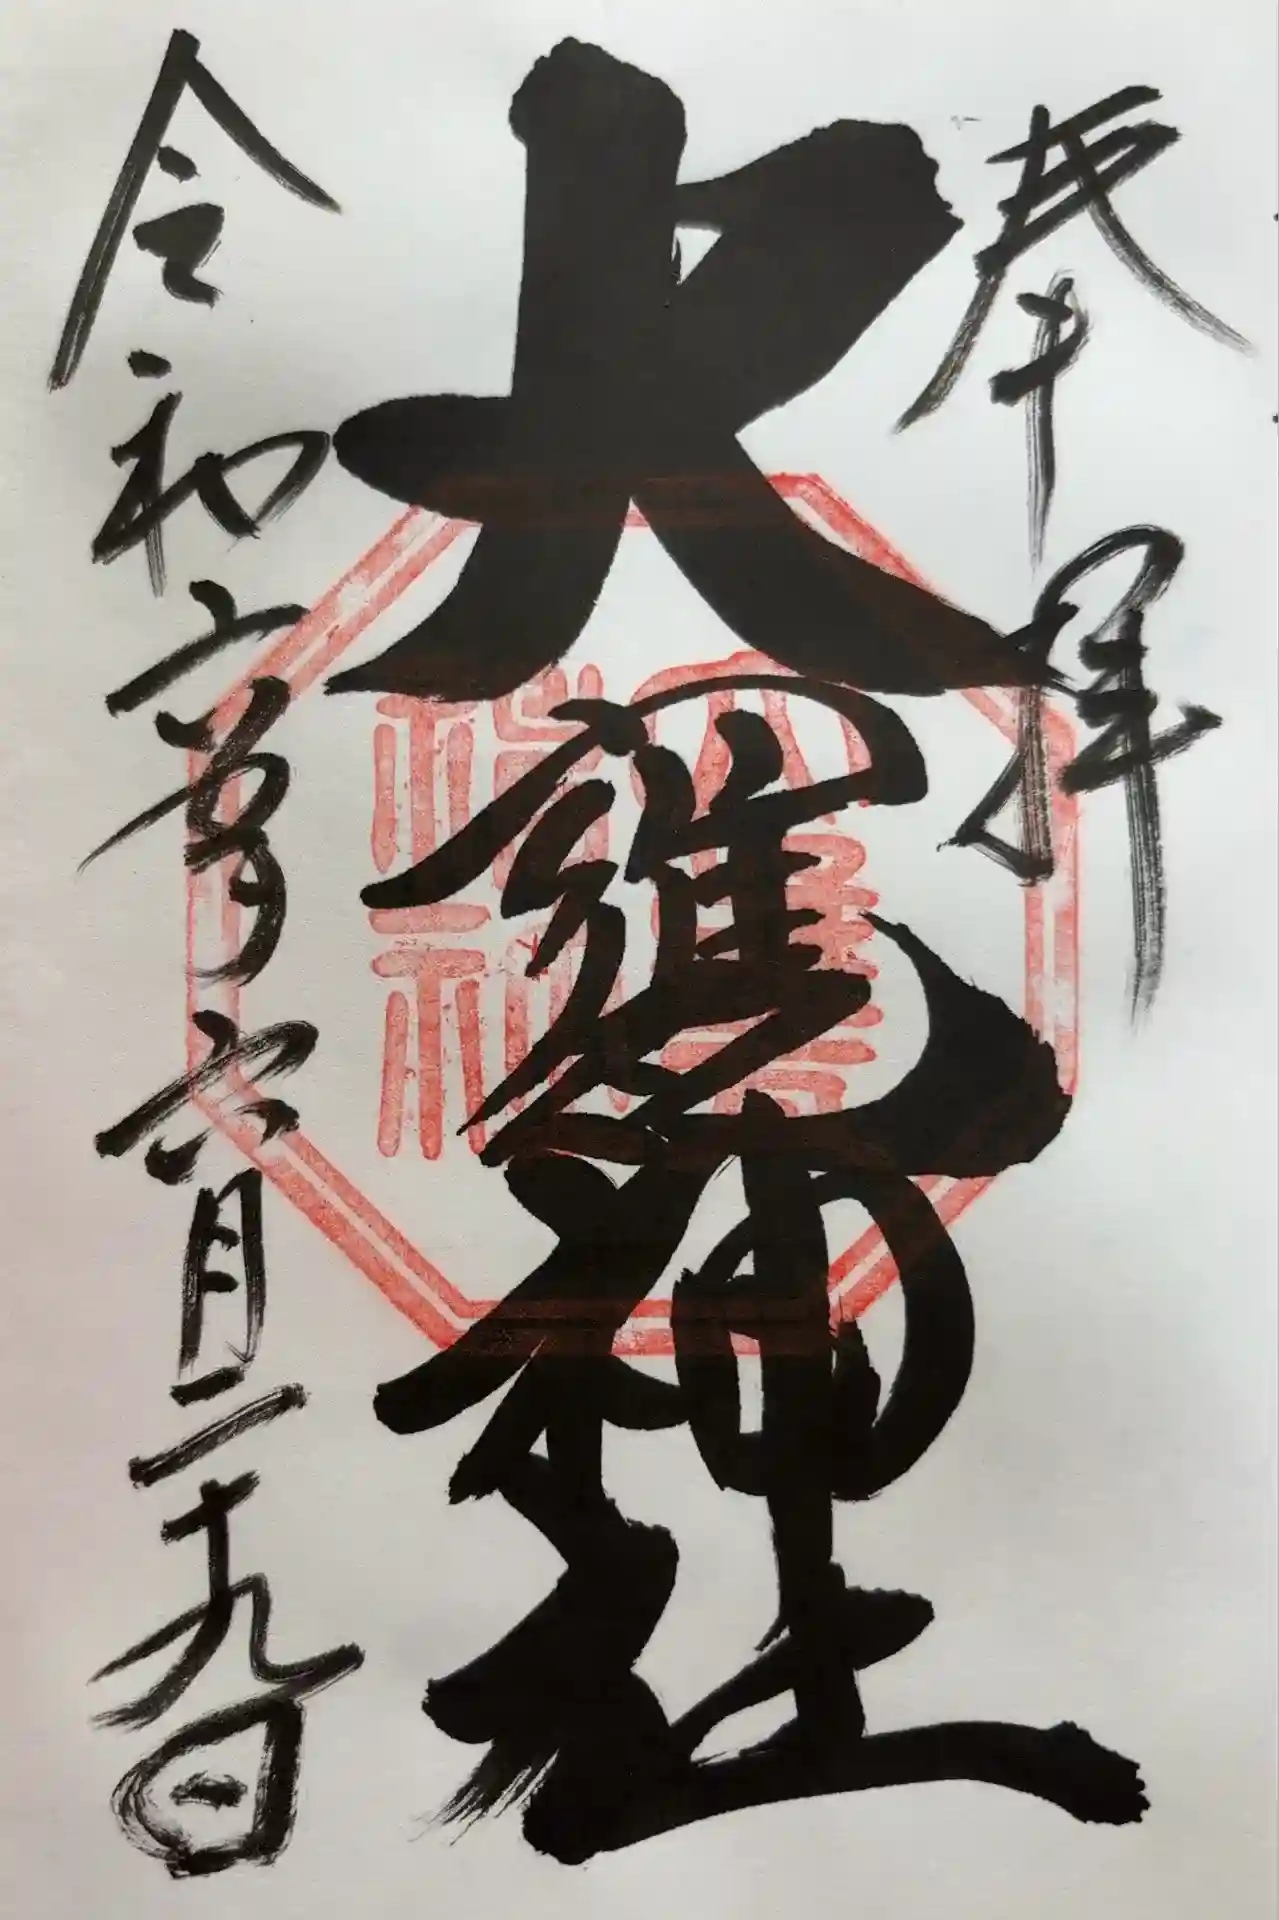 奉拝
大甕神社
令和六歳六月二十九日